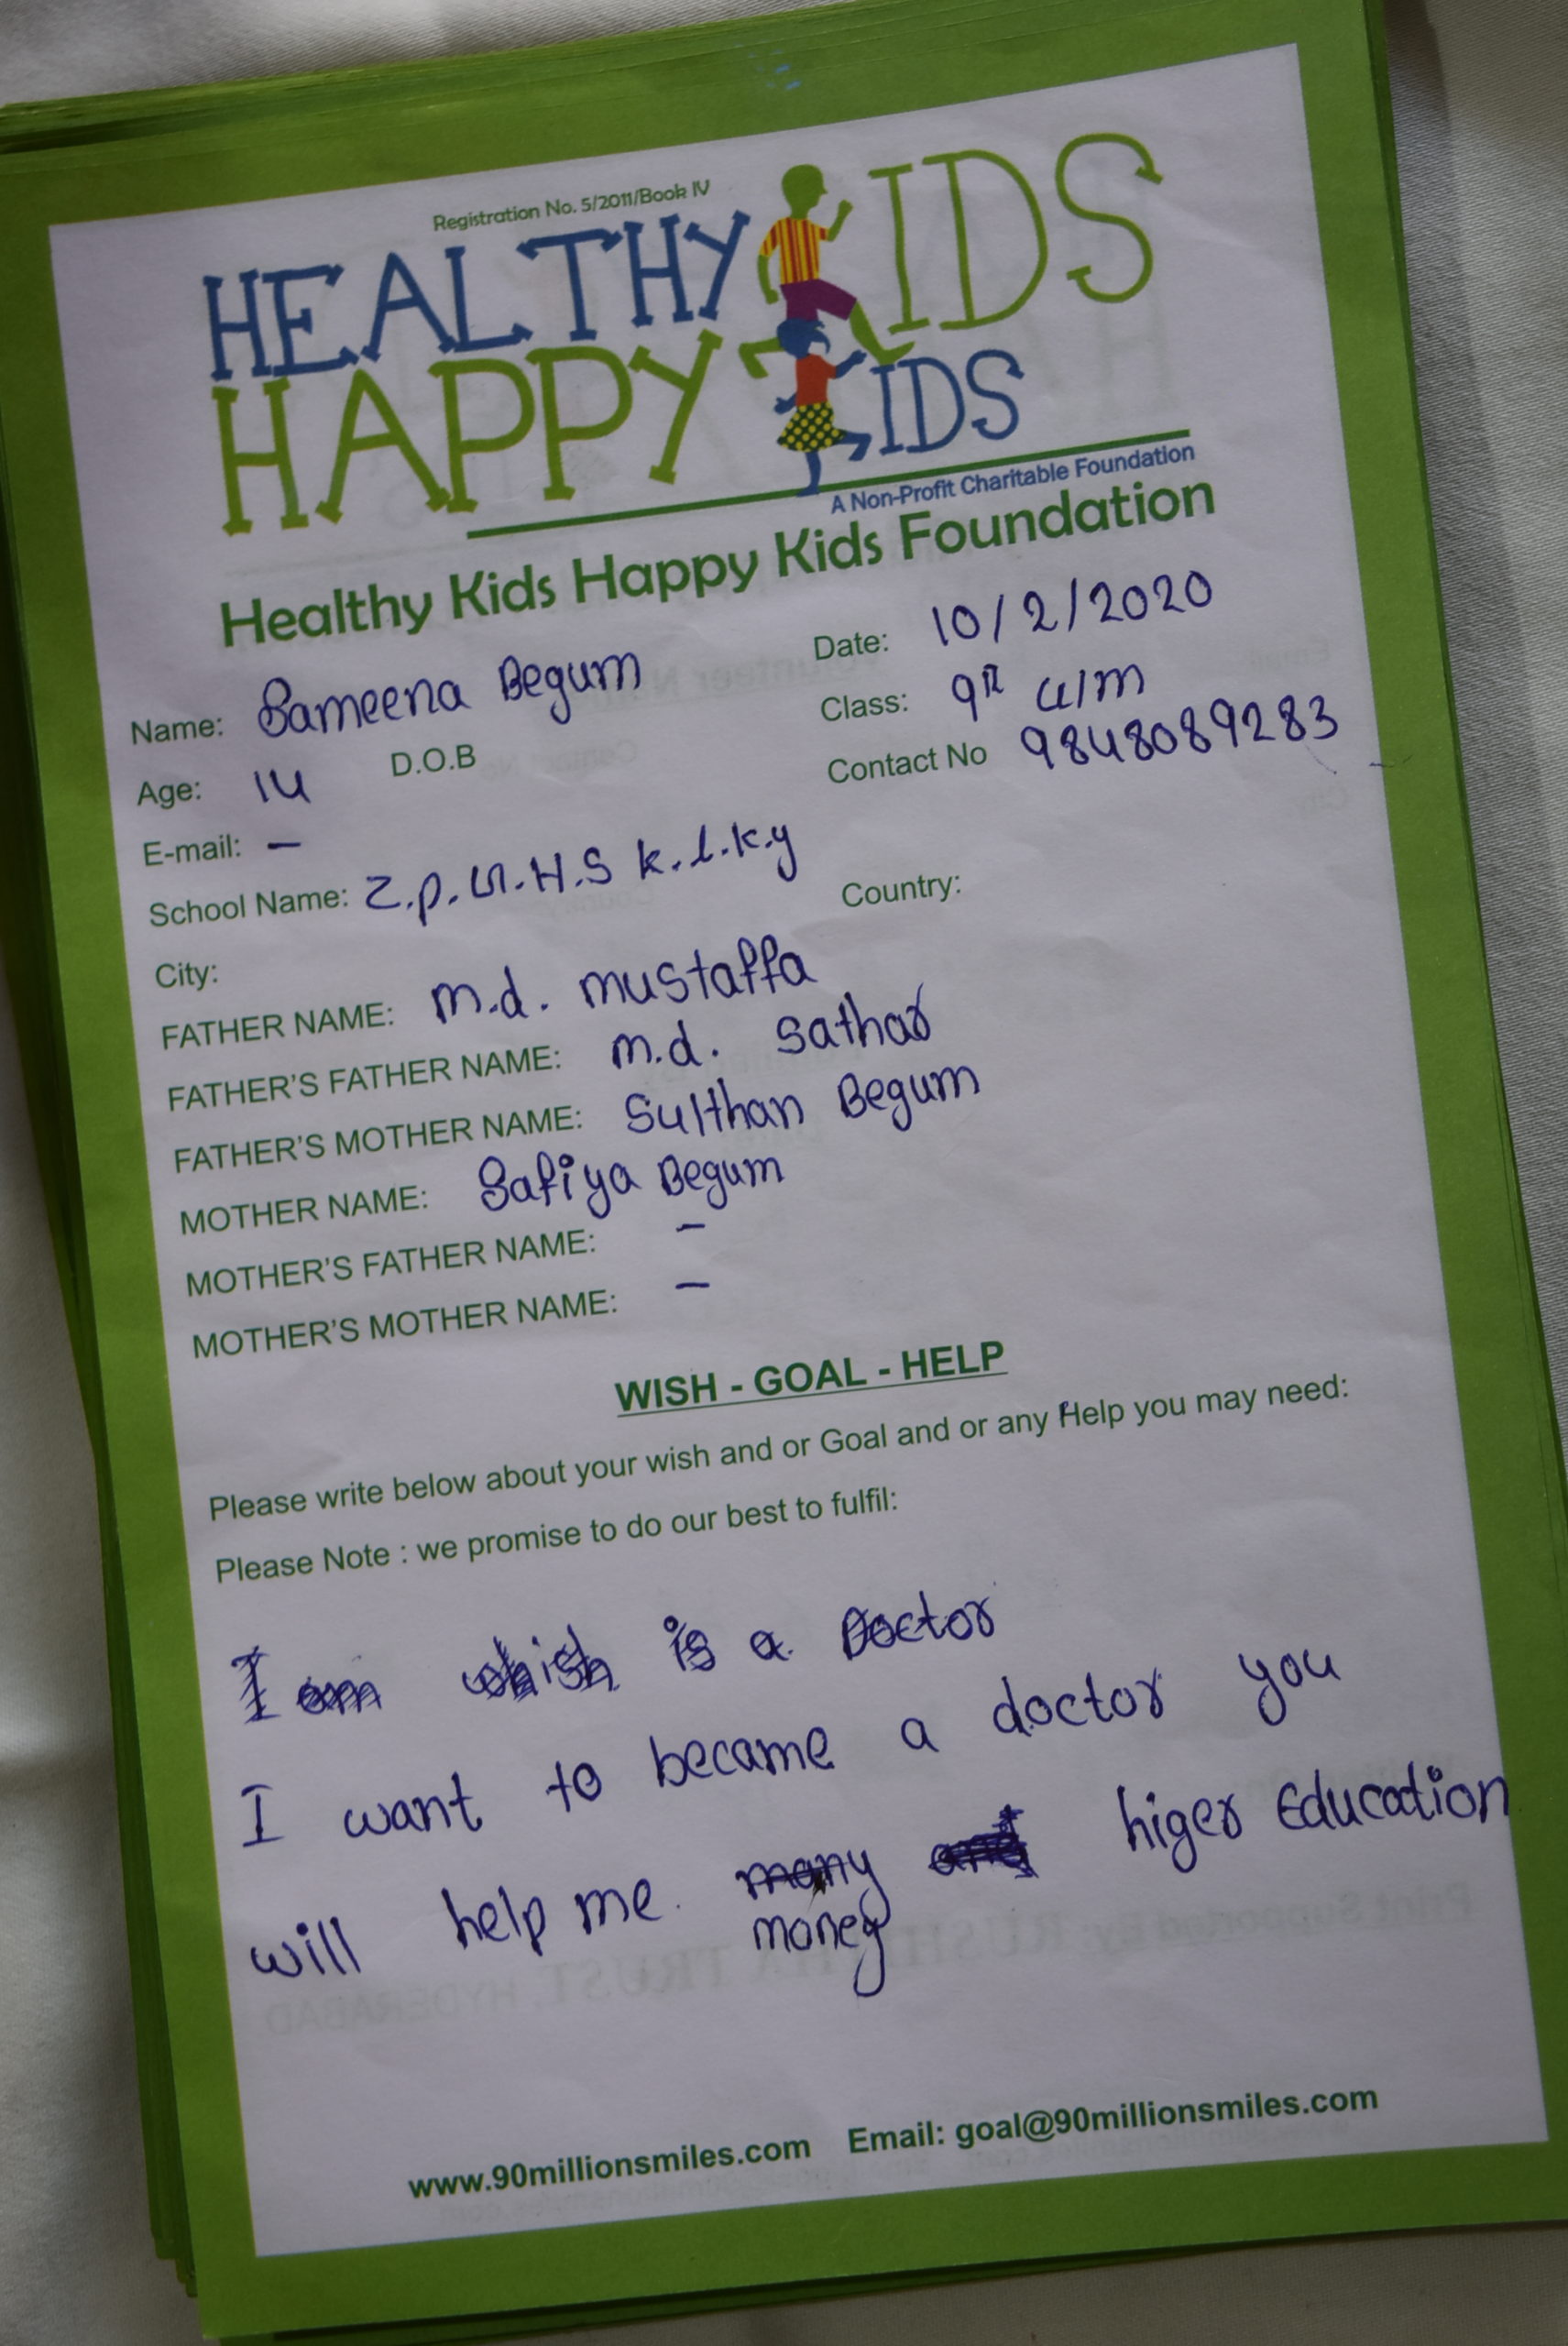 Registration No. 5/2011/Book IV
HEALTHY KIDS
HAPPY KIDS
A Non-Profit Charitable Foundation
Healthy Kids Happy Kids Foundation
Name: Sameena Begum Date: 10/2/2020
Age: 14 D.O.B Class: 9th u/m
E-mail: – Contact No 9848089283
School Name: Z.p.G.H.S k.l.k.y
City: Country:
FATHER NAME: m.d. mustaffa
FATHER'S FATHER NAME: m.d. Sathar
FATHER'S MOTHER NAME: Sulthan Begum
MOTHER NAME: Safiya Begum
MOTHER'S FATHER NAME: –
MOTHER'S MOTHER NAME: –
WISH - GOAL - HELP
Please write below about your wish and or Goal and or any Help you may need:
Please Note : we promise to do our best to fulfil:
I am whish is a Doctor
I want to became a doctor you
will help me. many and higer Education
money
www.90millionsmiles.com Email: goal@90millionsmiles.com